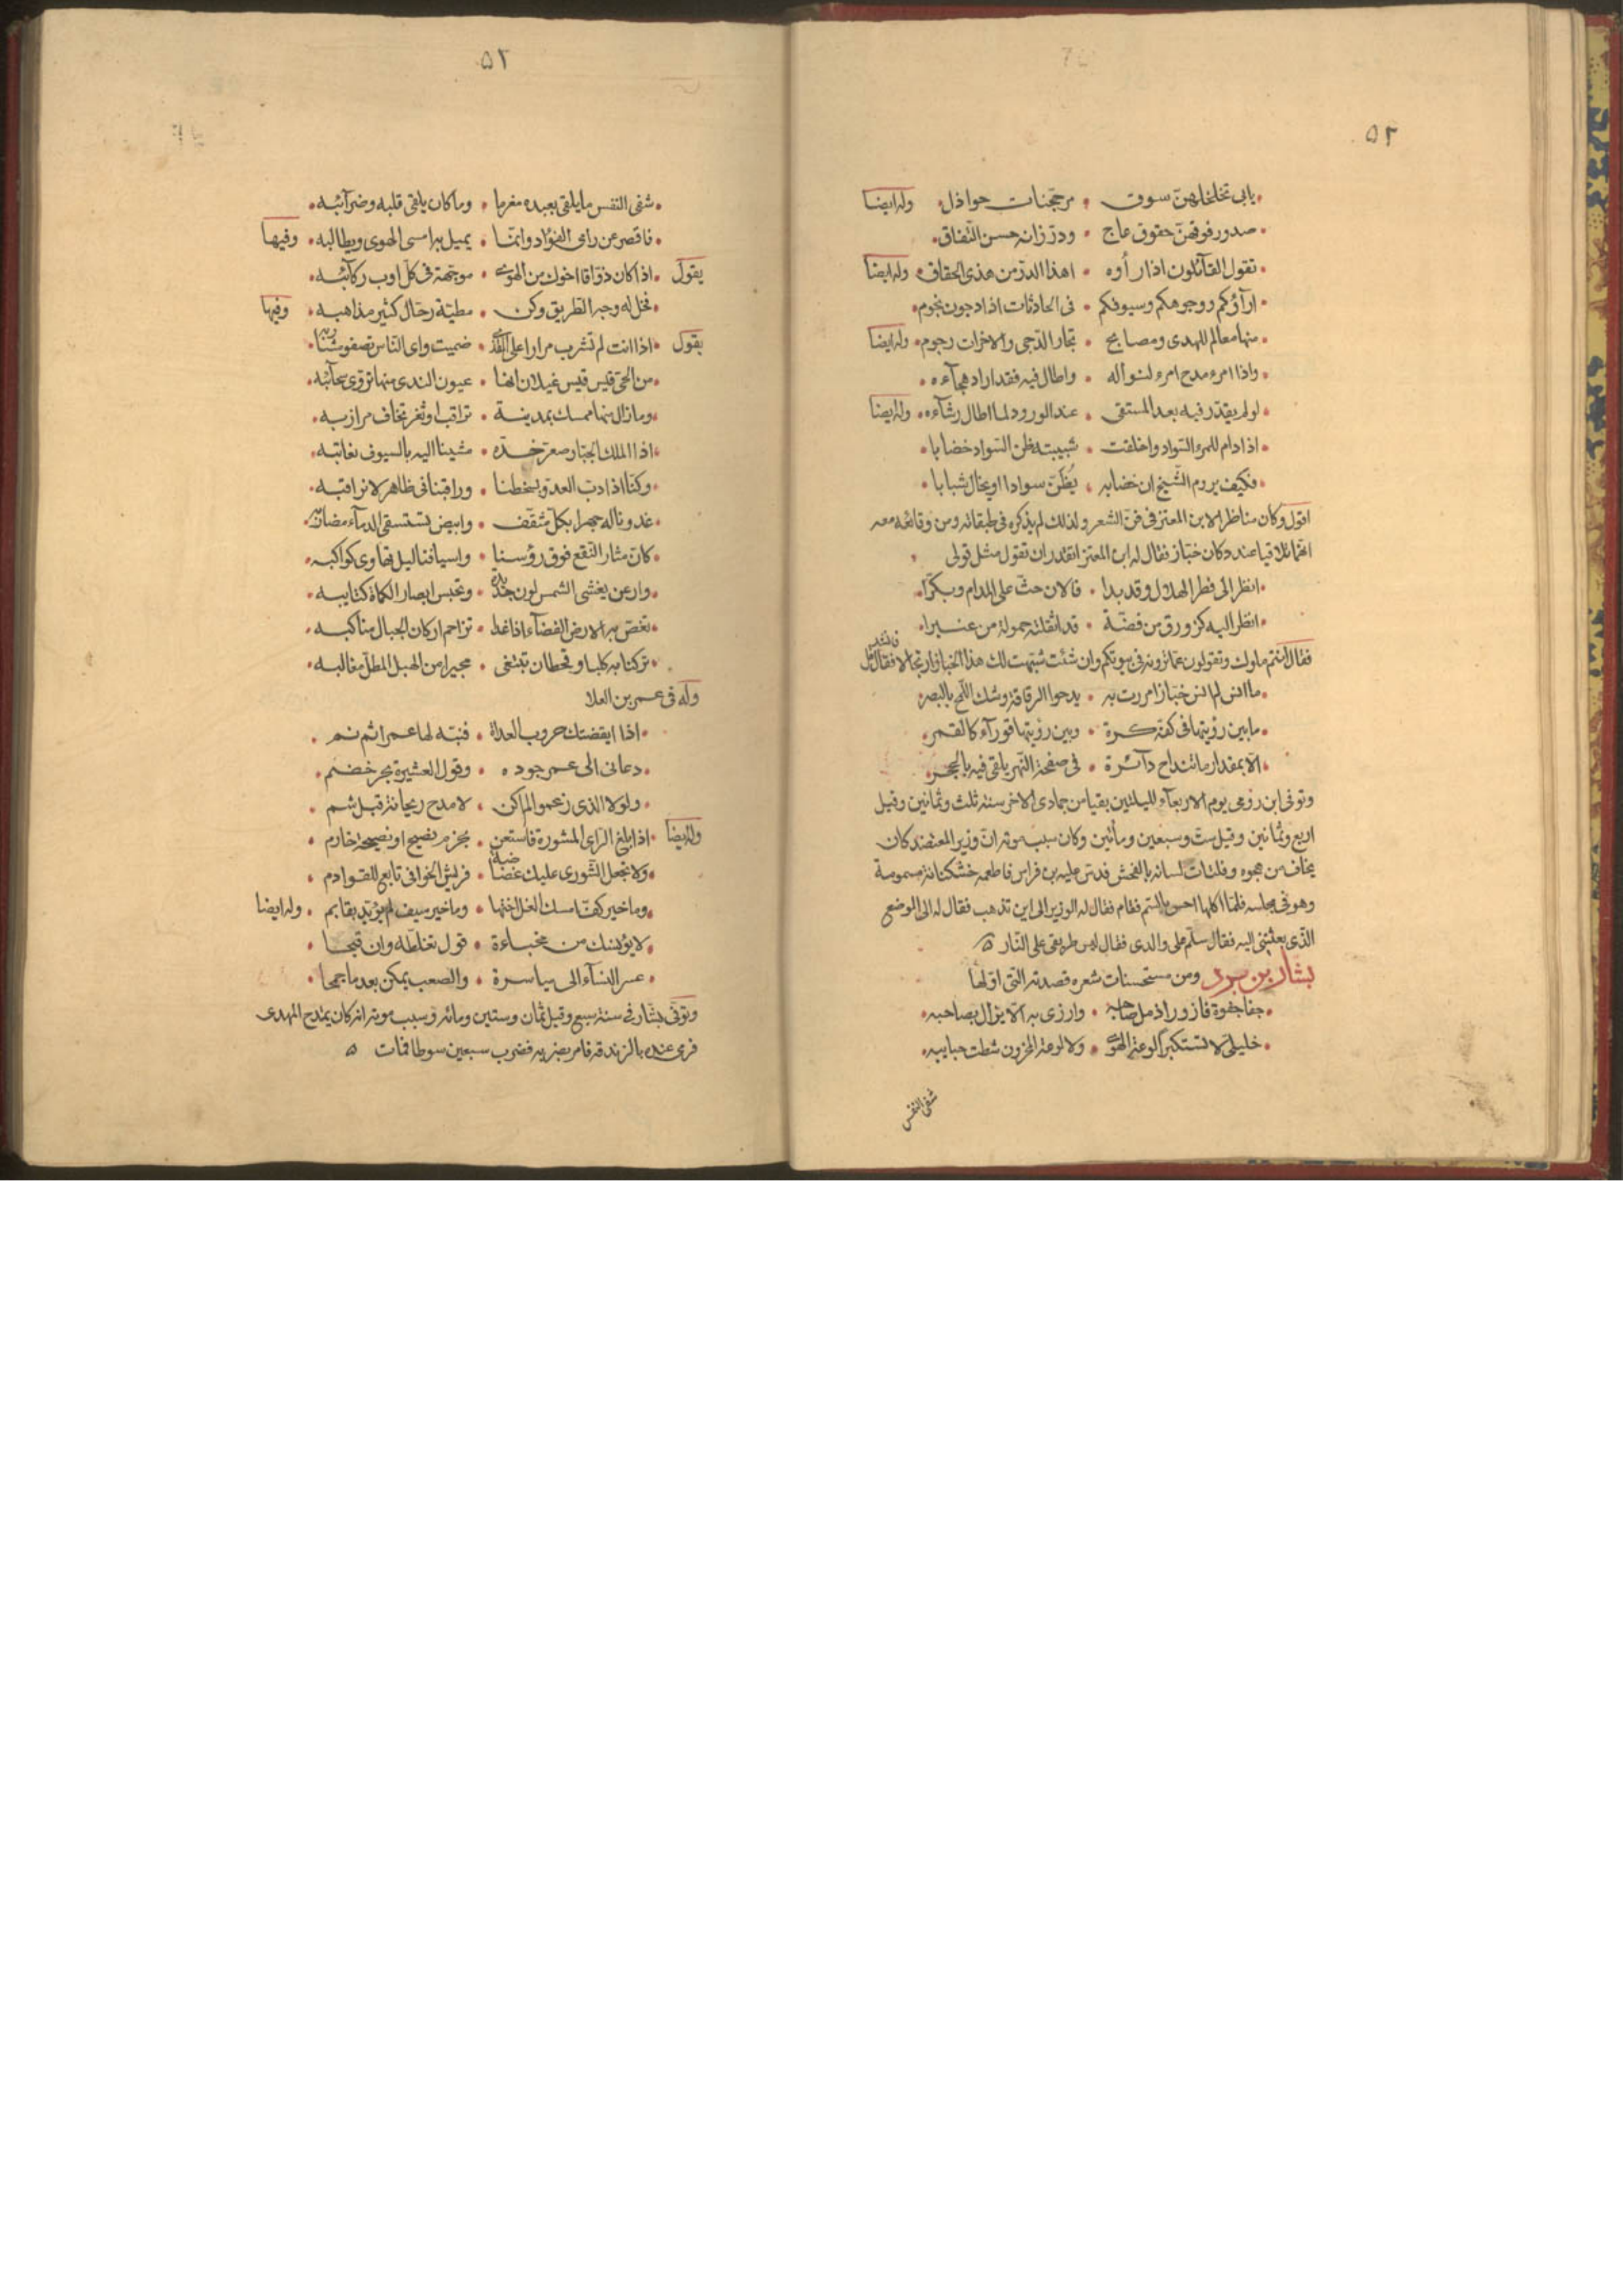 ٥٢
يابى تخلخلهن سوق • مرجحنات حواذل • وله ايضا
• صدور فوقهن حقوق عاج • ودر زانه حسن اتفاق •
• تقول القآئلون اذا رأوه • اهذا الدر من هذى الحقاق • وله ايضا
• ارآؤكم ووجوهكم وسيوفكم • فى الحادثات اذا دجون نجوم •
• منها معالم للهدى ومصابح • تجلو الدجى والاخرات رجوم • وله ايضا
• واذا امرء مدح امرء لنواله • واطال فيه فقد اراد هجآءه •
• لو لم يقدر فيه بعد المستقى • عند الورود لما اطال رشآءه • وله ايضا
• اذا دام للمرء السواد واخلفت • شبيبته ظن السواد خضابا •
• فكيف يروم الشيخ ان خضابه • يُظن سوادا او يخال شبابا •
اقول وكان مناظرا لابن المعتز فى فن الشعر ولذلك لم يذكره فى طبقاته ومن وقائعه معه
انهما تلاقيا عند دكان خباز فقال له ابن المعتز اتقدر ان تقول مثل قولى
• انظر الى فطر الهلال وقد بدا • فالان حث على المدام وبكرا •
• انظر اليه كزورق من فضة • قد اثقلته حمولة من عنبرا •
فقال انتم ملوك وتقولون عما ترونه فى بيوتكم وان شئت شبهت لك هذا الخباز ارتجالا فقال قل فانشد
• ما انس لم انس خبازا مررت به • يدحوا الرقاقة وشك اللمح بالبصر
• ما بين رؤيتها فى كفه كرة • وبين رؤيتها قورآء كالقمر •
• الا بمقدار ما تنداح دآئرة • فى صفحة النهر يلقى فيه بالحجر •
وتوفى ابن رومى يوم الاربعآء لليلتين بقيا من جمادى الاخر سنة ثلث وثمانين وقيل
اربع وثمانين وقيل ست وسبعين ومأتين وكان سبب موته ان وزير المعتضد كان
يخاف من هجوه وفلتات لسانه بالفحش فدس عليه بن فراس فاطعمه خشكنانة مسمومة
وهو فى مجلسه فلما اكلها احس بالسم فقام فقال له الوزير الى اين تذهب فقال له الى الموضع
الذى بعثتنى اليه فقال سلم على والدى فقال ليس طريقى على النار ٥
بشار بن برد ومن مستحسنات شعره قصيدته التى اولها
• جفا جفوة فازور اذ مل صاحبه • وارزى به الا يزال يصاحبه •
• خليلى لا تستكبرا لوعة الهوى • ولا لوعة المحزون شطت حبايبه •
شفى النفس
٥٢
• شفى النفس ما يلقى بعبده مغرما • وما كان يلقى قلبه وضرآئبه •
• فاقصر عن راى الفؤاد وانما • يميل به امسى الهوى ويطالبه • وفيها
يقول • اذا كان ذواقا اخوك من الهوى • موجهة فى كل اوب ركآئبه •
• فخل له وجه الطريق ولا تكن • مطية رحال كثير مذاهبه • وفيها
يقول • اذا انت لم تشرب مرارا على القذى • ضميت واى الناس تصفو مشاربه •
• من الحى قيس قيس غيلان انها • عيون الندى منها تروى سحآئبه •
• وما زال منها ممسك بمدينة • تراقب او ثغر تخاف مرازبه •
• اذا الملك الجبار صعر خده • مشينا اليه بالسيوف نعاتبه •
• وكنا اذا دب العدو بسخطنا • وراقبنا فى ظاهر لا نراقبه •
• غدونا له جهرا بكل مثقف • وابيض تستسقى الدمآء مضاربه •
• كان مثار النقع فوق رؤسنا • واسيافنا ليل تهاوى كواكبه •
• وارعن يغشى الشمس لون حديده • وتحبس ابصار الكماة كتايبه •
• تغص به الارض الفضآء اذا غدا • تزاحم اركان الجبال مناكبه •
• تركنا به كلبا وقحطان تبتغى • مجيرا من الهبل المطل مغالبه •
وله فى عمر بن العلا
• اذا ايقضتك حروب العداة • فنبه لها عمرا ثم نم •
• دعانى الى عمر جوده • وقول العشيرة بحر خضم •
• ولولا الذى زعموا لم اكن • لامدح ريحانة قبل شم •
وله ايضا • اذا بلغ الراى المشورة فاستعن • بحزم نصيح او نصيحة حازم •
• ولا تجعل الشورى عليك غضاضة • فريش الخوافى تابع للقوادم •
• وما خير كف امسك الغل اختها • وما خير سيف لم يؤيد بقايم • وله ايضا
• لا يؤيسنك من مخباءة • قول تغلظه وان قبحا •
• عسر النسآء الى مياسرة • والصعب يمكن بعد ما جمحا •
وتوفى بشار فى سنة سبع وقيل ثمان وستين ومائه وسبب موته انه كان يمتدح المهدى
فرمى عنده بالزندقة فامر بضربه فضرب سبعين سوطا فمات ٥